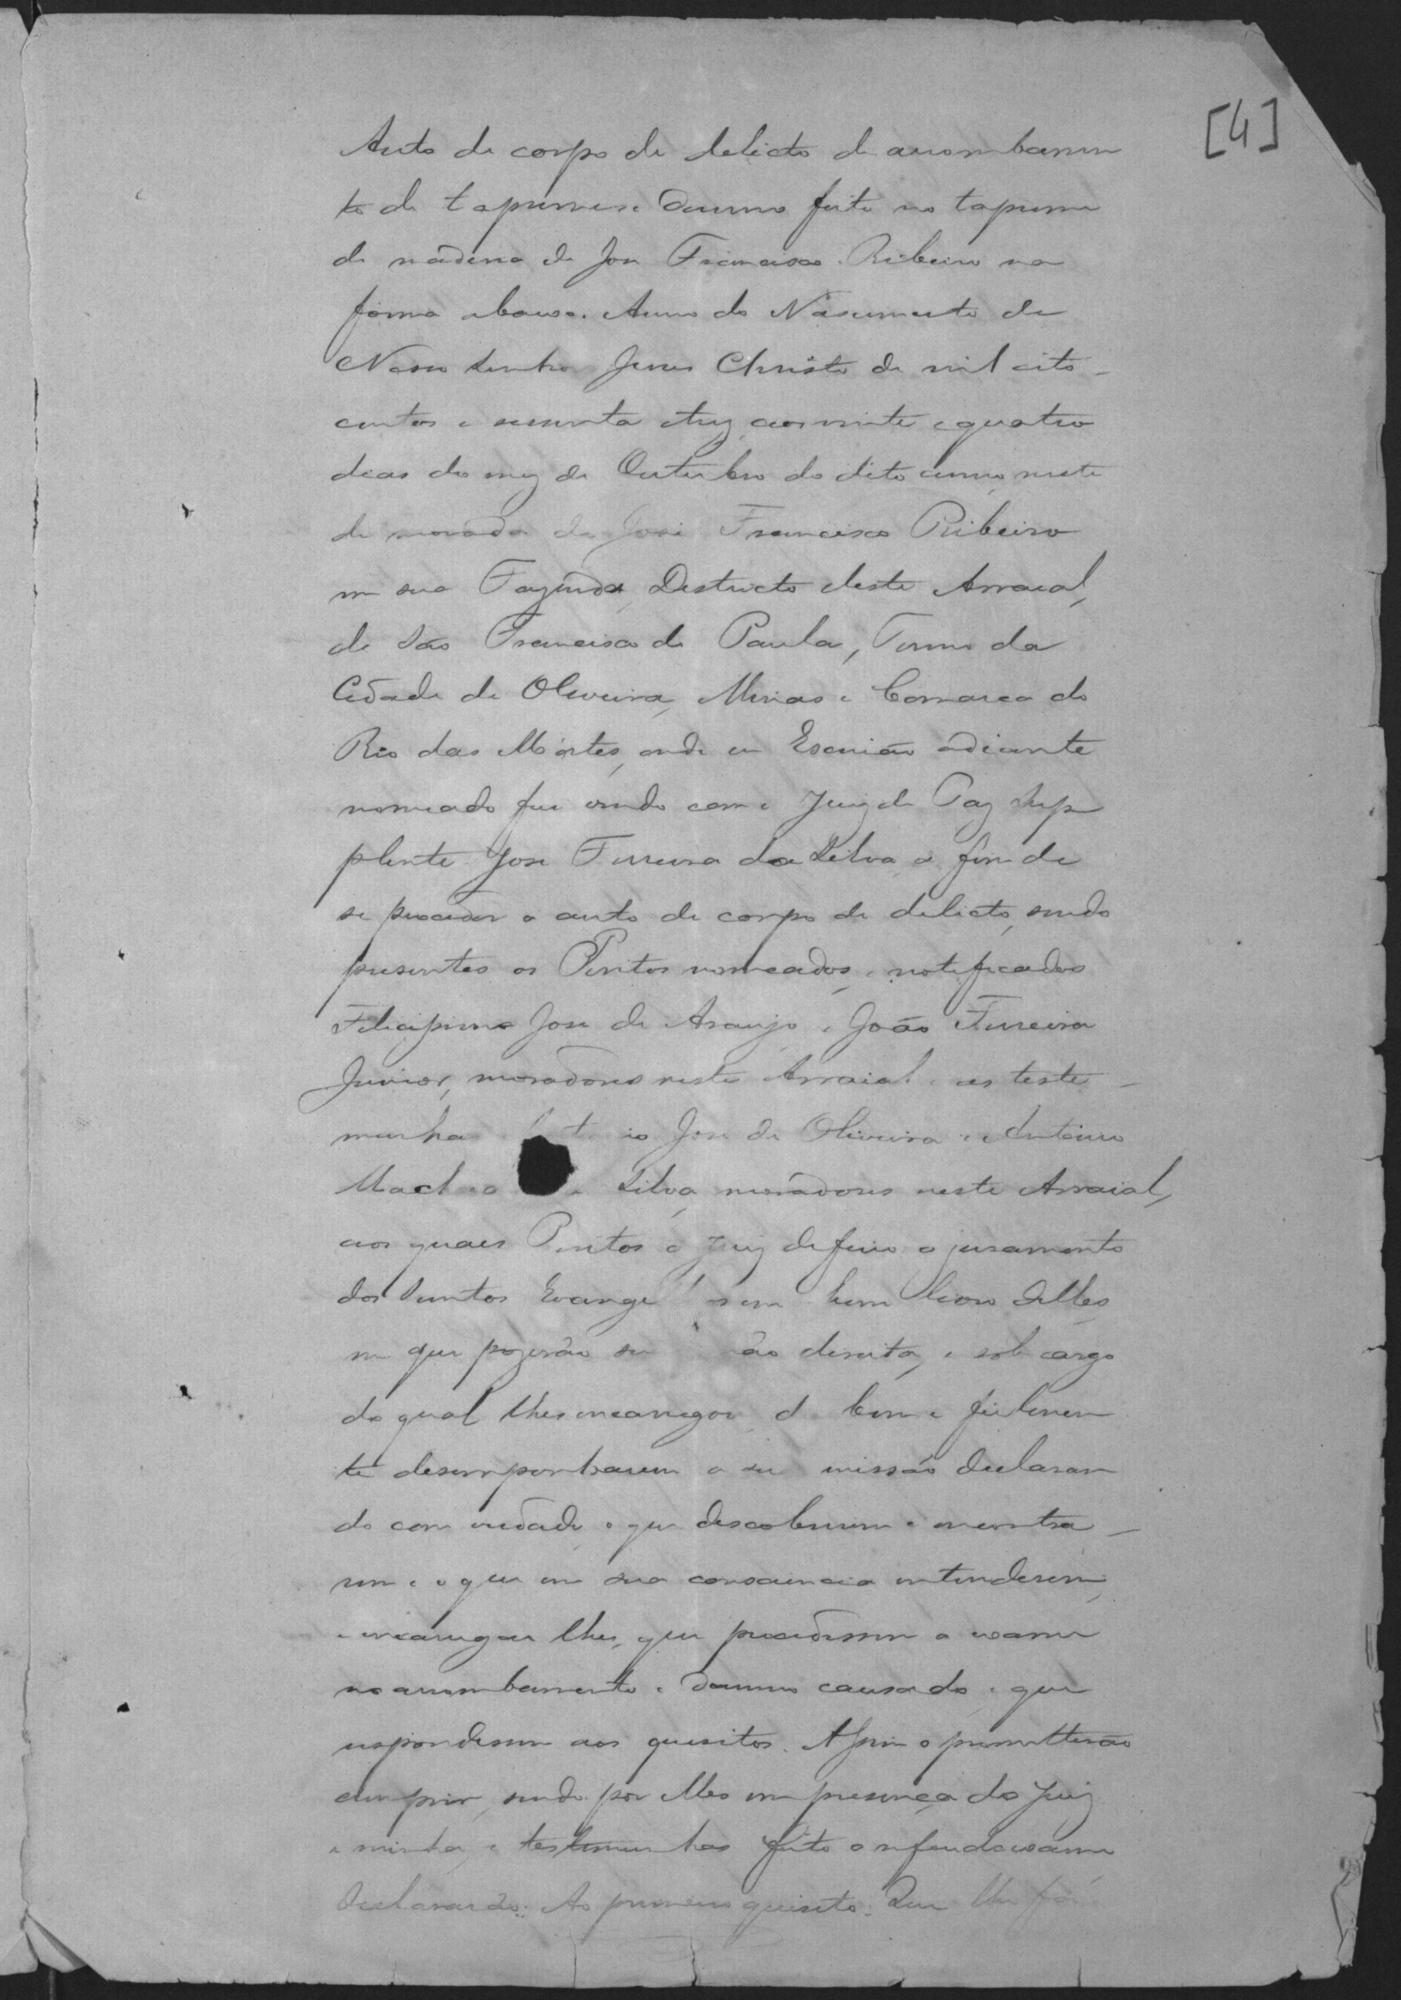 [4]
Auto de corpo de delicto de arrombamen
to de tapumes e damno feito no tapume
de madeira de Jose Francisco Ribeiro na
forma abaixo. Anno do Nascimento de
Nosso Senhor Jesus Christo de mil oito-
centos e sessenta e trez, aos vinte e quatro
dias do mez de Outubro do dito anno, neste
de morada de José Francisco Ribeiro
em sua Fazenda, Destricto deste Arraial,
de São Francisco de Paula, Termo da
Cidade de Oliveira, Minas e Comarca do
Rio das Mortes, onde eu Escrivão adiante
nomeado fui vindo com o Juiz de Paz Sup
plente Jose Ferreira da Silva, a fim de
se proceder o auto de corpo de delicto, sendo
presentes os Peritos nomeados, e notificados
Felicissimo Jose de Araujo e João Ferreira
Junior, moradores neste Arraial e as teste-
munhas Jose de Oliveira e Antonio
Silva, moradores neste Arraial,
aos quaes Peritos o Juiz deferio o juramento
dos Santos Evange em hum livro delles
em que pozerão su ão direita, e sob cargo
do qual lhes encarregou d bem e fielmen
te desempenharem a su missão declaran
do com verdade o que descobrirem e encontra-
rem e o que em sua consciencia entenderem,
e encarregou lhes, que procedessem a exame
no arrombamento e damno causado, e que
respondessem aos quesitos. Assim o prometterão
cumprir, sendo por elles em presença do Juiz
e minha, e testemunhas feito o referido exame
declararão: Ao primeiro quesito: Que